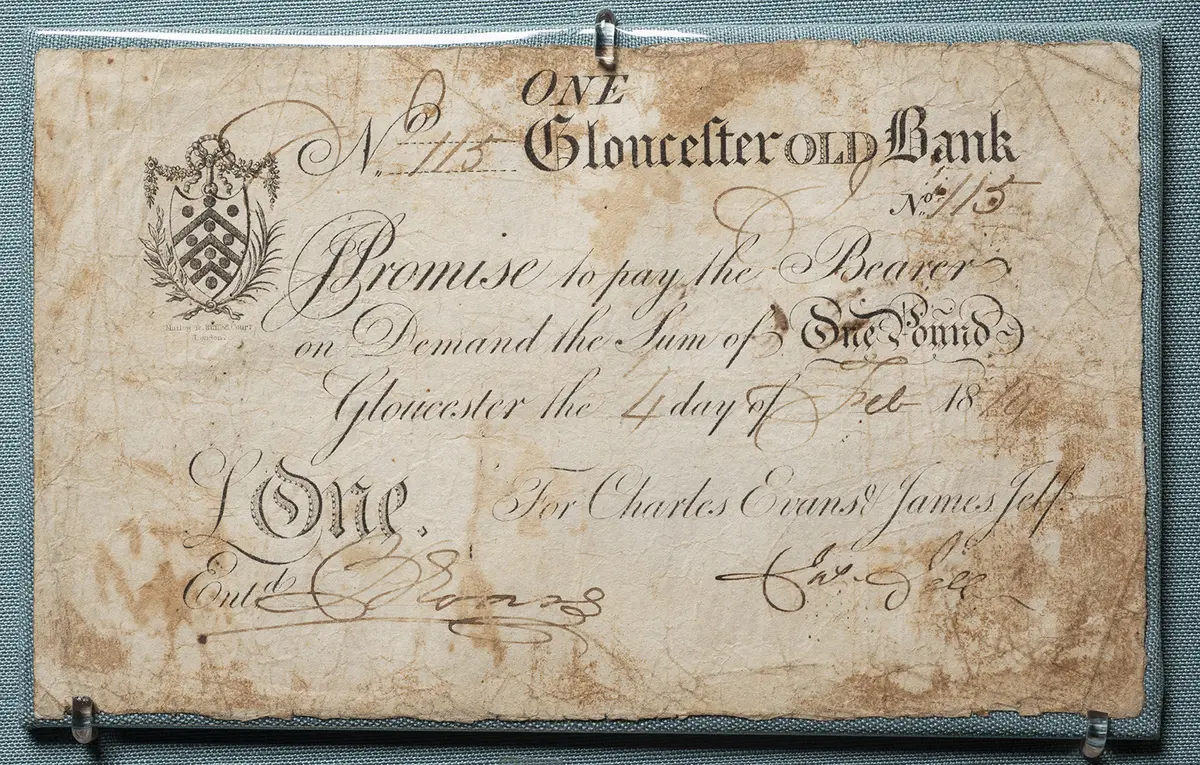 ONE
No 115 Gloucester OLD Bank
No 115
I Promise to pay the Bearer
on Demand the Sum of One Pound
Gloucester the 4 day of Feb 18
£One. For Charles Evans & James Jelf.
Entd C Evans Jas Jelf
London